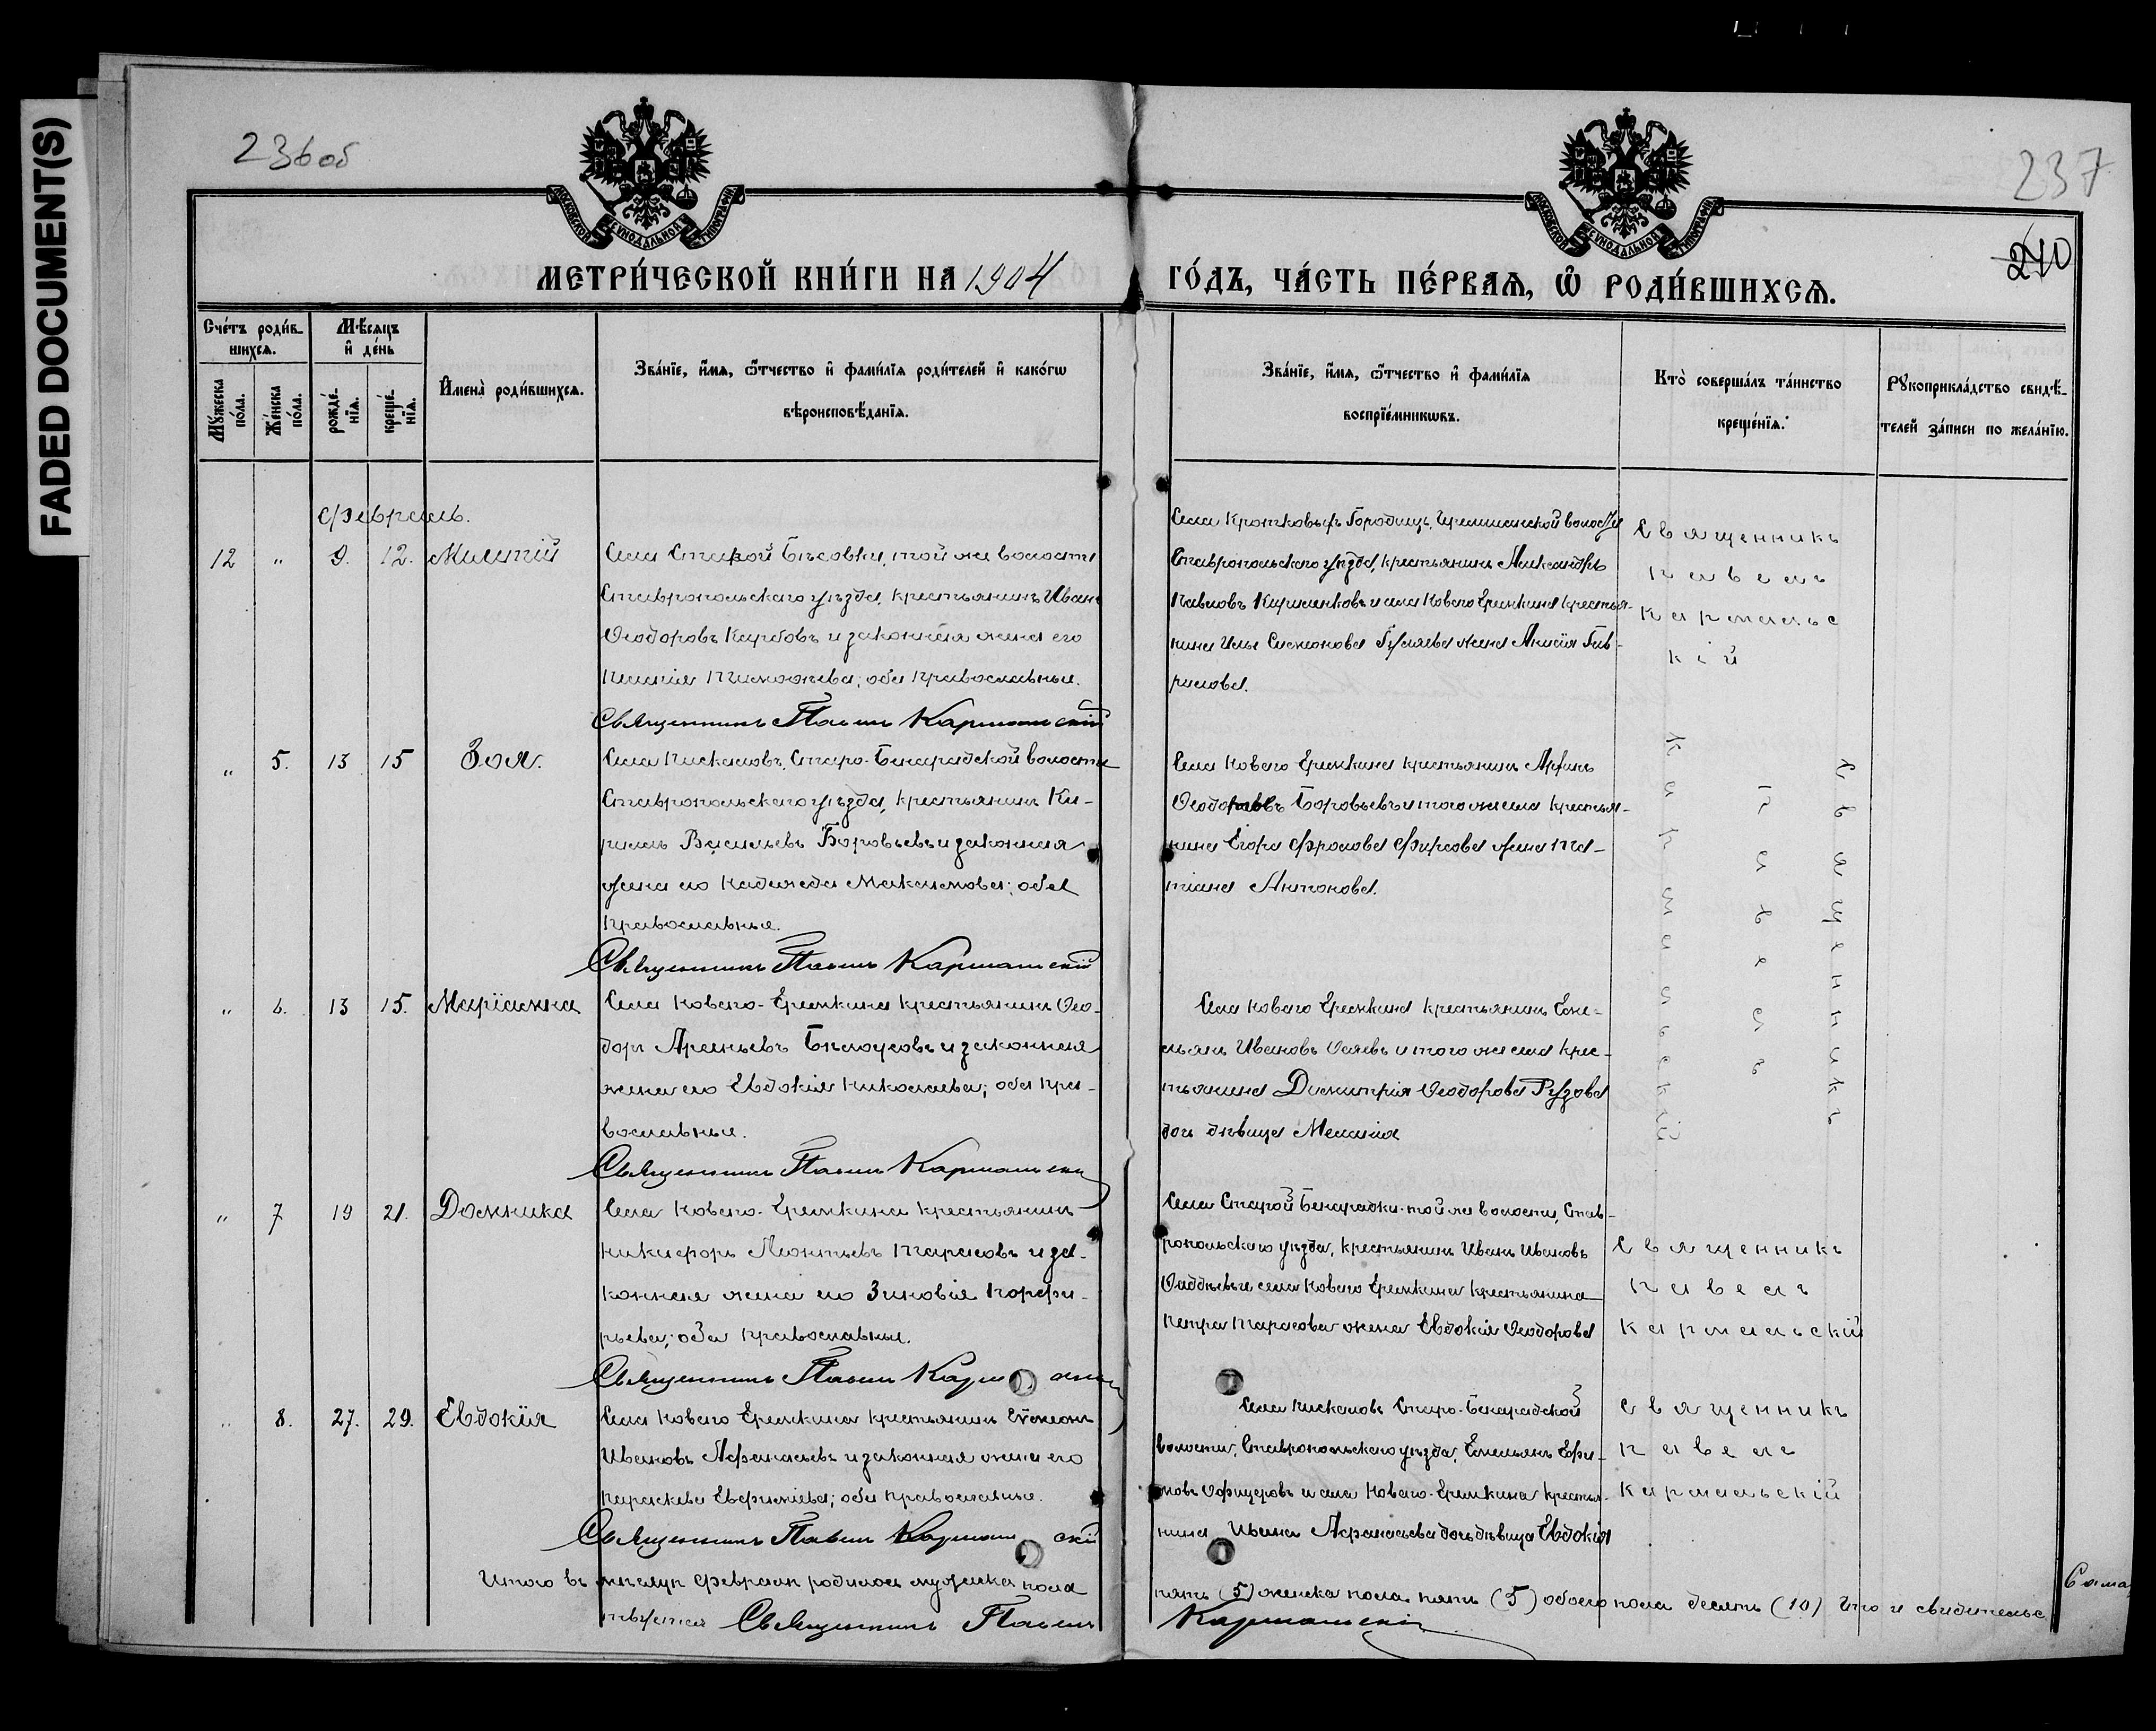 FADED DOCUMENT(S)
236 об
237
240
МОСКОВСКОЙ СѴНОДАЛЬНОЙ ТИПОГРАФІИ
МОСКОВСКОЙ СѴНОДАЛЬНОЙ ТИПОГРАФІИ
МЕТРИ́ЧЕСКОЙ КНИ́ГИ НА 1904
ГО́ДЪ, ЧА́СТЬ ПЕ́РВАѦ, Ѽ РОДИ́ВШИХСѦ.
Сче́тъ роди́в-
шихсѧ.
Мѣ́сѧцъ
и҆ де́нь
Мꙋ́жеска по́ла.
Же́нска по́ла.
рожде́-
нїѧ.
креще́-
нїѧ.
И҆мена̀ роди́вшихсѧ.
Зва́нїе, и҆́мѧ, ѻ҆́тчество и҆ фами́лїѧ роди́телей и҆ како́гѡ
вѣроисповѣ́данїѧ.
Зва́нїе, и҆́мѧ, ѻ҆́тчество и҆ фами́лїѧ
воспрїе́мникѡвъ.
Кто̀ соверша́лъ та́инство
креще́нїѧ.
Рꙋкоприкла́дство свидѣ́-
телей за́писи по жела́нїю.
Февраль.
12 " 9. 12. Милетій
Села Старой Бѣсовки, той же волости
Ставропольскаго уѣзда, крестьянинъ Иванъ
Ѳеодоровъ и законная жена его
обa православные.
Священникъ Павелъ Кармальскій
Села Кротковыхъ Городищъ, волости
Ставропольскаго уѣзда, крестьянинъ Александръ
Павловъ и села Новаго Еремкина крестья-
нина Ильи Симонова Гуляева жена Анисія Гав-
рилова.
Священникъ
Павелъ
Кармальс
кій
" 5. 13 15 Зоя.
Села Пискаловъ, Старо-Бинарадской волости
Ставропольскаго уѣзда, крестьянинъ Ки-
риллъ Васильевъ Боровьевъ и законная
жена его Надежда Максимова; оба
православные.
Священникъ Павелъ Кармальскій
Села Новаго Еремкина крестьянинъ
Ѳеодоровъ Боровьевъ и того же села крестья-
нина Егора Фролова Фирсова жена Та-
тіана Антонова.
Священникъ
Павелъ
Кармальскій
" 6. 13 15. Маріанна
Села Новаго-Еремкина крестьянинъ Ѳео-
доръ Арсеньевъ Бѣлоусовъ и законная
жена его Евдокія Николаева; оба пра-
вославные.
Священникъ Павелъ Кармальскій
Села Новаго Еремкина крестьянинъ Еме-
льянъ Ивановъ и того же села крес-
тьянина Димитрія Ѳеодорова Рузова
дочь дѣвица Меланія
" 7 19 21. Домника
Села Новаго-Еремкина крестьянинъ
Никифоръ Леонтьевъ Тарасовъ и за-
конная жена его Зиновія Порфи-
рьева; оба православные.
Священникъ Павелъ Кармальскій
Села Старой Бинарадки той же волости, Став-
ропольскаго уѣзда, крестьянинъ Иванъ Ивановъ
Ѳаддѣевъ и села Новаго Еремкина крестьянина
Петра Тарасова жена Евдокія Ѳеодорова
Священникъ
Павелъ
Кармальскій
" 8. 27. 29. Евдокія
Села Новаго Еремкина крестьянинъ Сѵмеонъ
Ивановъ Афанасьевъ и законная жена его
Параскева Евфиміева; оба православные.
Священникъ Павелъ Кармальскій
Села Пискаловъ Старо-Бинарадской
волости, Ставропольскаго уѣзда, Емельянъ Ефи-
мовъ Офицеровъ и села Новаго-Еремкина крестья-
нина Ивана Афанасьева дочь дѣвица Евдокія
Священникъ
Павелъ
Кармальскій
Итого въ мѣсяцѣ Февралѣ родилось мужеска пола
пять (5) женска пола пять (5) обоего пола десять (10) Что и свидѣтельс
твуется Священникъ Павелъ
Кармальскій